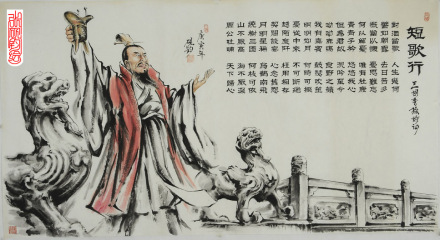 短歌行
對酒當歌 人生幾何
譬如朝露 去日苦多
慨當以慷 憂思難忘
何以解憂 唯有杜康
青青子衿 悠悠我心
但為君故 沉吟至今
呦呦鹿鳴 食野之苹
我有嘉賓 鼓瑟吹笙
明明如月 何時可掇
憂從中來 不可斷絕
越陌度阡 枉用相存
契闊談讌 心念舊恩
月明星稀 烏鵲南飛
繞樹三匝 何枝可依
山不厭高 海不厭深
周公吐哺 天下歸心
庚寅年